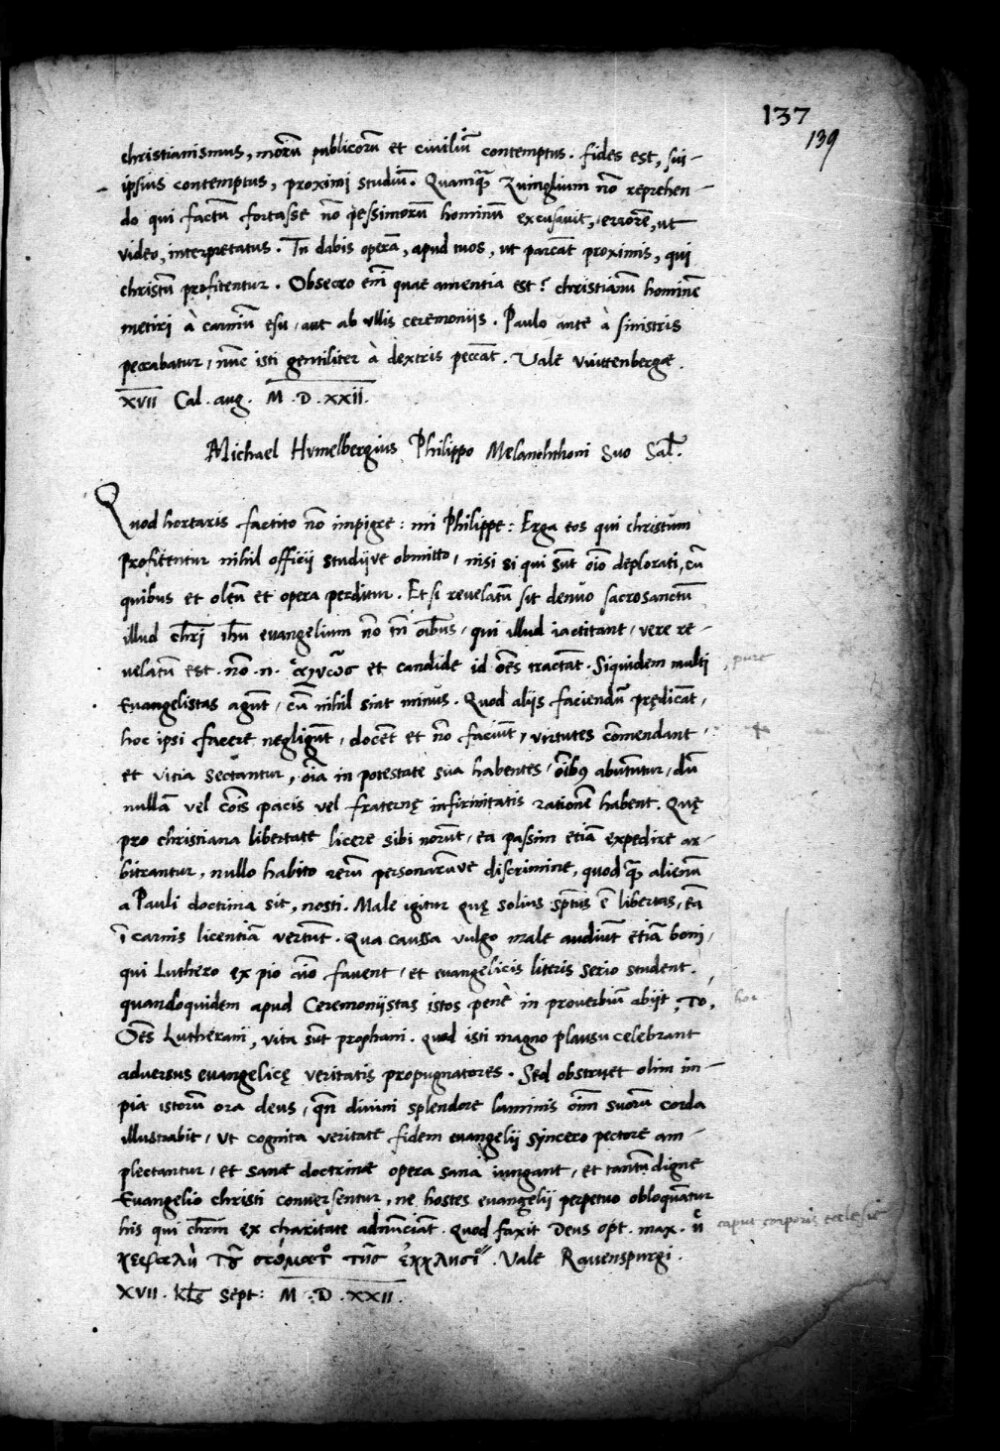 137
139
christianismus, morū publicorū et civiliū contemptus. fides est, sui-
ipsius contemptus, proximi studiū. Quamq̄ Zuinglium nō reprehen-
do qui factū fortasse nō pessimorū hominū excusavit, errorē, ut
video, interpretatus. Tu dabis operā, apud tuos, ut parcāt proximis, qui
christū profitentur. Obsecro em̄ quae amentia est? christianū hominē
metiri à carniū esu, aut ab ullis ceremoniis. Paulo ante à sinistris
peccabatur, nūc isti gentiliter à dextris peccāt. Vale Vuittenbergae.
XVII Cal. aug. M.D.XXII.
Michael Humelbergius Philippo Melanchthoni Suo Sal̄.
Quod hortaris factito nō impigre: mi Philippe: Erga eos qui christum
Profitentur nihil officii studiive obmitto, nisi si qui sūt oīo deplorati, cū
quibus et oleū et opera perditur. Etsi revelatū sit denuo sacrosanctū
illud chr̄i ihū evangelium nō tn̄ oībus, qui illud iactitant, vere re-
velatū est. nō .n. ἁγνῶς et candide id oēs tractāt. Siquidem multi
pure
Evangelistas agūt, cū nihil sint minus. Quod aliis faciendū prędicāt,
hoc ipsi facere negligūt, docēt et nō faciūt, virtutes cōmendant
et vitia sectantur, oīa in potestate sua habentes, oībus abutūtur, dū
nullā vel cōis pacis vel fraternę infirmitatis rationē habent. Quę
pro christiana libertate licere sibi norūt, ea passim etiā expedire ar-
bitrantur, nullo habito rerū personarūve discrimine, quod q̄ alienū
a Pauli doctrina sit, nosti. Male igitur quę solius sp̄tus ē libertas, eā
ī carnis licentiā vertūt. Qua caussa vulgo male audiūt etiā boni,
qui Luthero ex pio aīo favent, et evangelicis literis serio student.
quandoquidem apud Ceremoniistas istos penè in proverbiū abiit, τό,
hoc
Oēs Lutherani, vita sūt prophani. quod isti magno plausu celebrant
adversus evangelicę veritatis propugnatores. Sed obstruet olim im-
pia istorū ora deus, qn̄ divini splendore luminis oīm suorū corda
illustrabit, ut cognita veritate fidem evangelij syncero pectore am-
plectantur, et sanae doctrinae opera sana iungant, et tantū digne
Evangelio christi conversentur, ne hostes evangelij perpetuo obloquātur
his qui chr̄m ex charitate adnūciāt. Quod faxit Deus opt. max. ἡ
caput corporis ecclesie
κεφαλὴ τοῦ σώματος τῆς ἐκκλησίας. Vale Ravenspurgi.
XVII. kl̄s Sept: M.D.XXII.